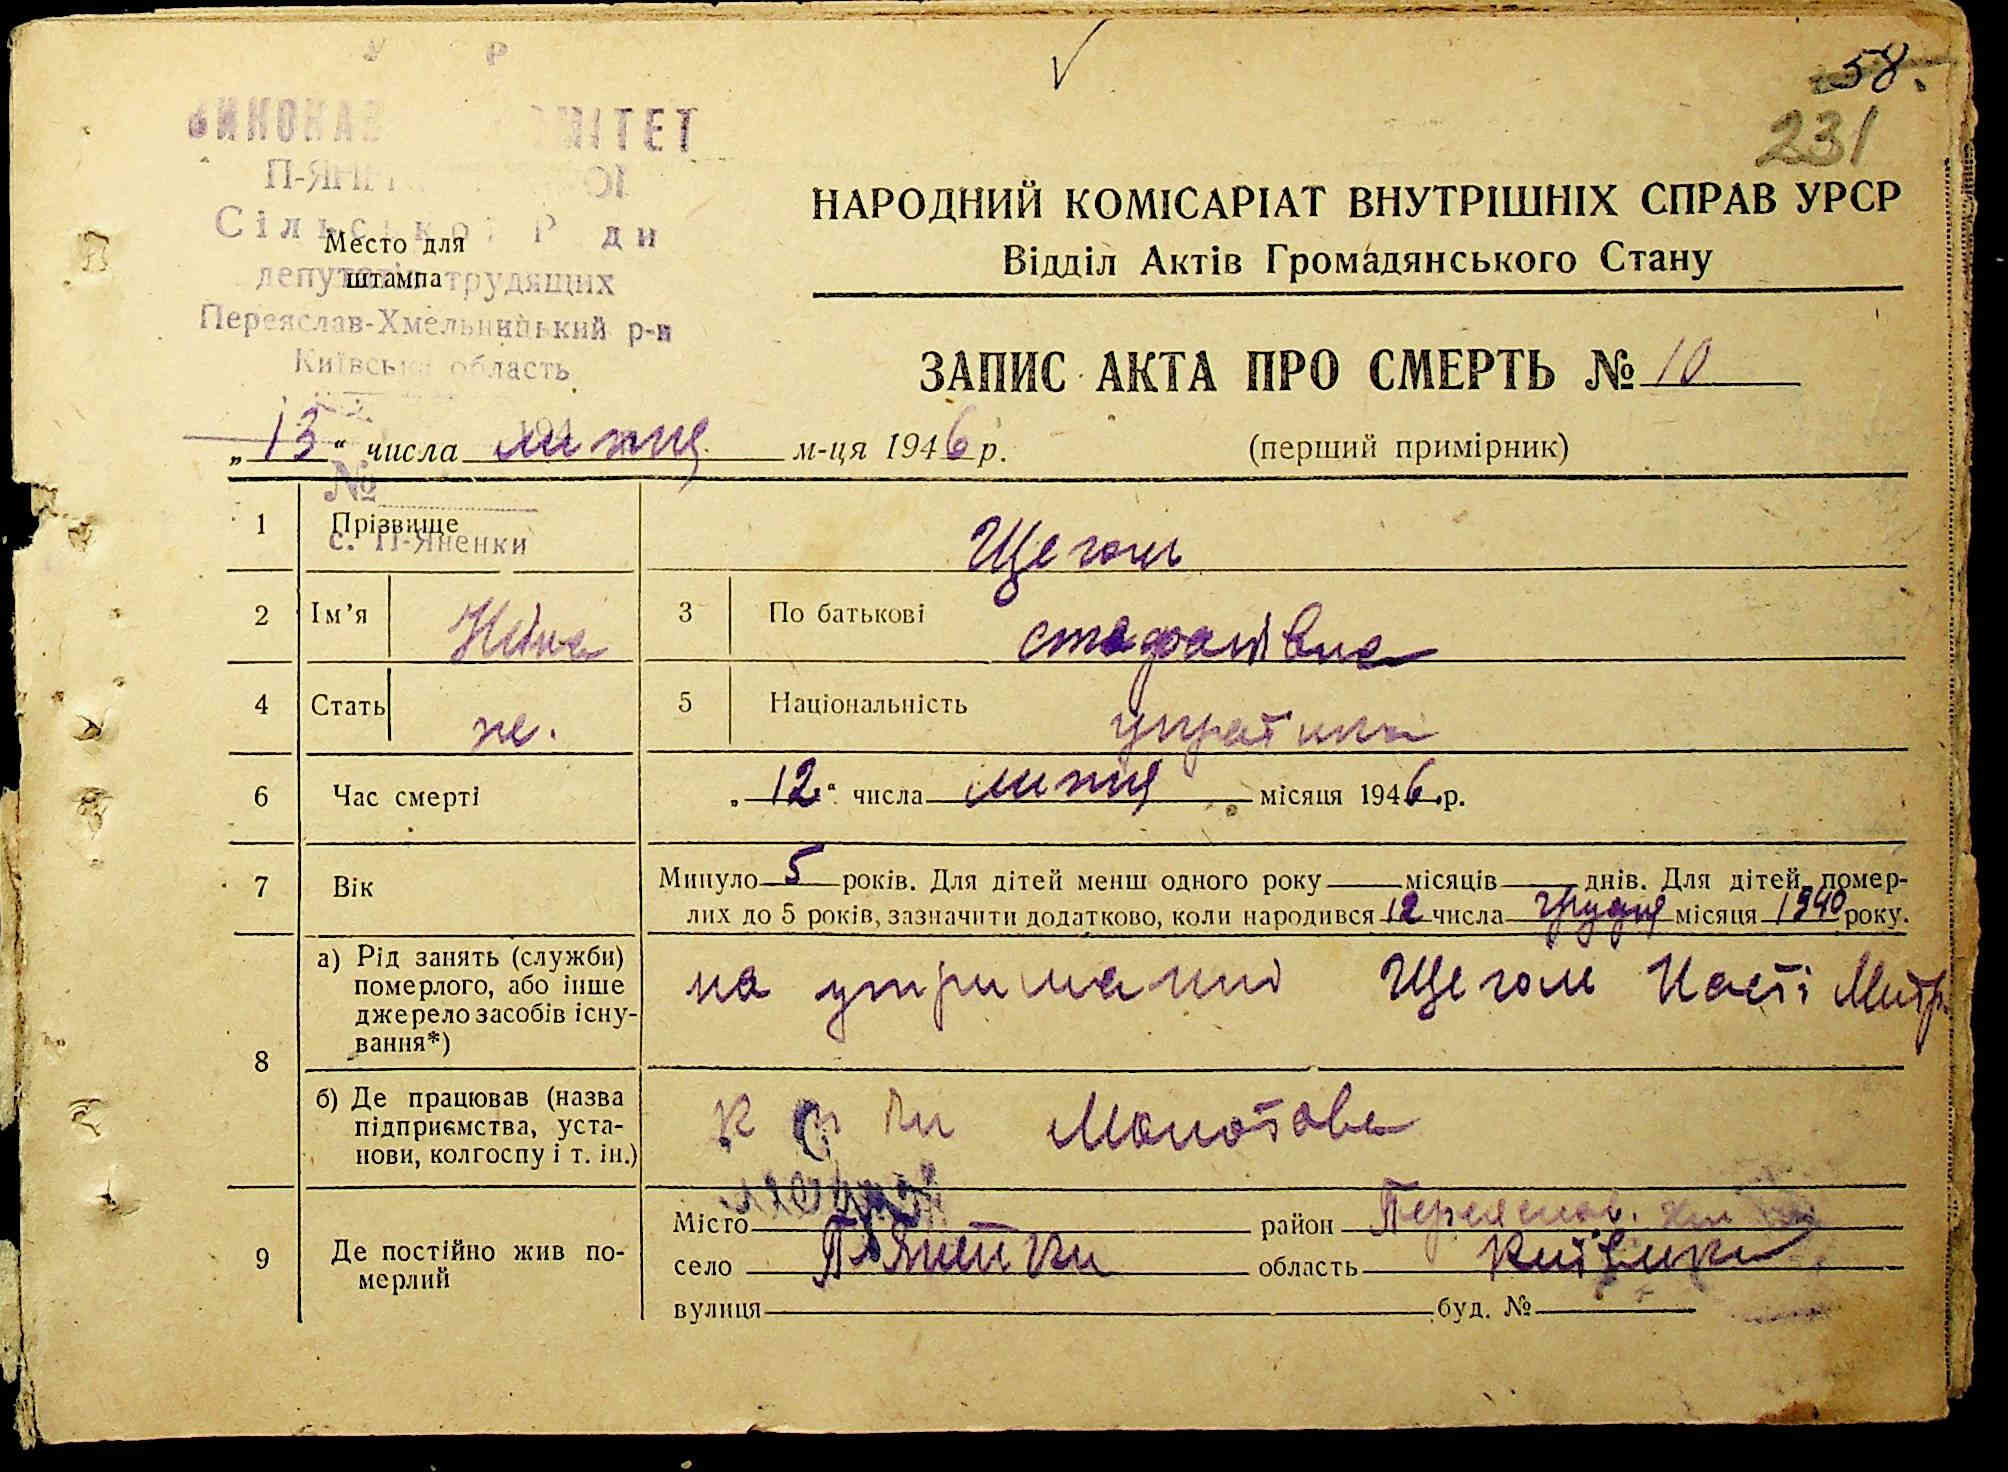 58.
231
У Р
П-ЯН
Сільської Р ди
Место для
штампа
депутатів трудящих
Переяслав-Хмельницький р-н
Київська область
НАРОДНИЙ КОМІСАРІАТ ВНУТРІШНІХ СПРАВ УРСР
Відділ Актів Громадянського Стану
ЗАПИС АКТА ПРО СМЕРТЬ № 10
„13“ числа липня м-ця 1946 р.
(перший примірник)
№
1 Прізвище Щеголь
с. П-Яненки
2 Ім’я Ніна 3 По батькові стафанівна
4 Стать ж. 5 Національність українка
6 Час смерті „12“ числа липня місяця 1946 р.
7 Вік Минуло 5 років. Для дітей менш одного року місяців днів. Для дітей, помер-
лих до 5 років, зазначити додатково, коли народився 12 числа грудня місяця 1940 року.
8 а) Рід занять (служби)
померлого, або інше
джерело засобів існу-
вання*)
на утриманні Щеголь Насті Митр.
б) Де працював (назва
підприємства, уста-
нови, колгоспу і т. ін.)
Молотова
9 Де постійно жив по-
мерлий
Місто район Переяслав. Хм
село П-Яненки область Київська
вулиця буд. №